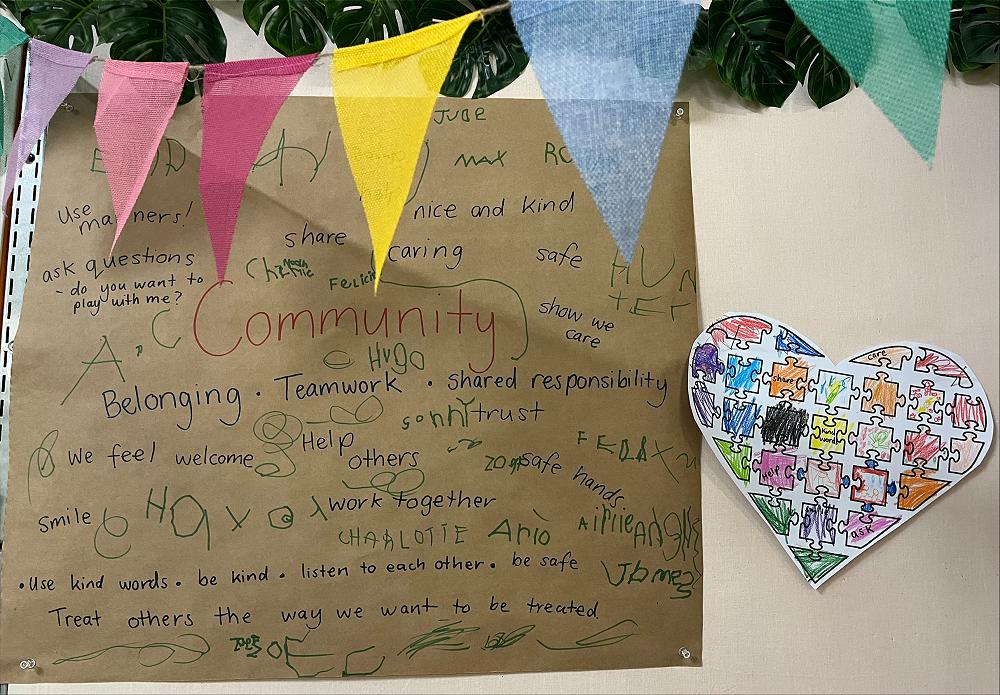 JUDE
MAX
use
manners!
nice and kind
share
caring
safe
ask questions
- do you want to
play with me?
Felici
HUN
TER
Community
show we
care
A.
HUGO
Belonging · Teamwork · shared responsibility
sonny
trust
we feel welcome
Help
others
safe hands
smile
work together
CHARLOTTE
Ario
James
• Use kind words • be kind • listen to each other • be safe
Treat others the way we want to be treated.
care
share
kind
words
help
ask